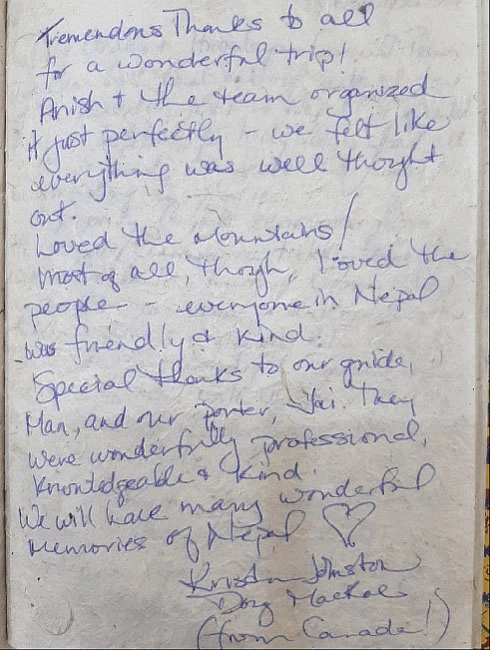 Tremendous Thanks to all
for a wonderful trip!
Anish + the team organized
it just perfectly - we felt like
everything was well thought
out.
Loved the Mountains!
Most of all, though, loved the
people - everyone in Nepal
was friendly & kind.
Special thanks to our guide,
Man, and our porter, Jai. They
were wonderfully professional,
knowledgeable & kind.
We will have many wonderful
memories of Nepal ♡
Johnston
Doug
(from Canada!)